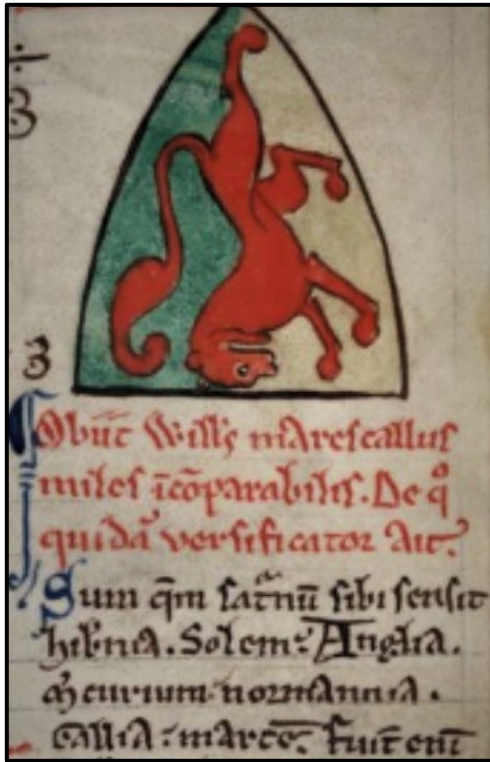 Obiit Will's marescallus
miles īcōparabilis. De qͦ
quidā versificator ait.
Sum qͣm sat'nū sibi sensit
hib'nia. Solem: Anglia.
M̄curium normannia.
Gallia: martē. Fuit eni